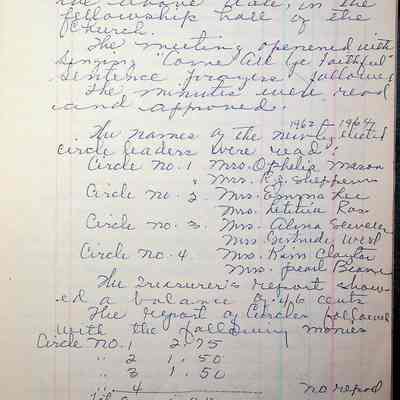 the above date, in the
fellowship hall of the
Church.
The meeting opened with
singing "Come All Ye Faithful"
Sentence prayers followed
The minutes were read
and approved.
1962 1964
The names of the newly elected
circle leaders were read:
Circle No. 1 Mrs. Ophelia Mason
" Mrs. R.J.
Circle No. 2. Mrs. Emma Lee
Mrs. Letitia Ross
Circle no. 3. Mrs. Alma
Mrs. Gertrude West
Circle no. 4. Mrs. Clayton
Mrs. Pearl
The Treasurer's report show-
ed a balance of 46 cents
The report of Circles followed
with the following monies
Circle No. 1 2.75
" 2 1.50
" 3 1.50
" 4 no report